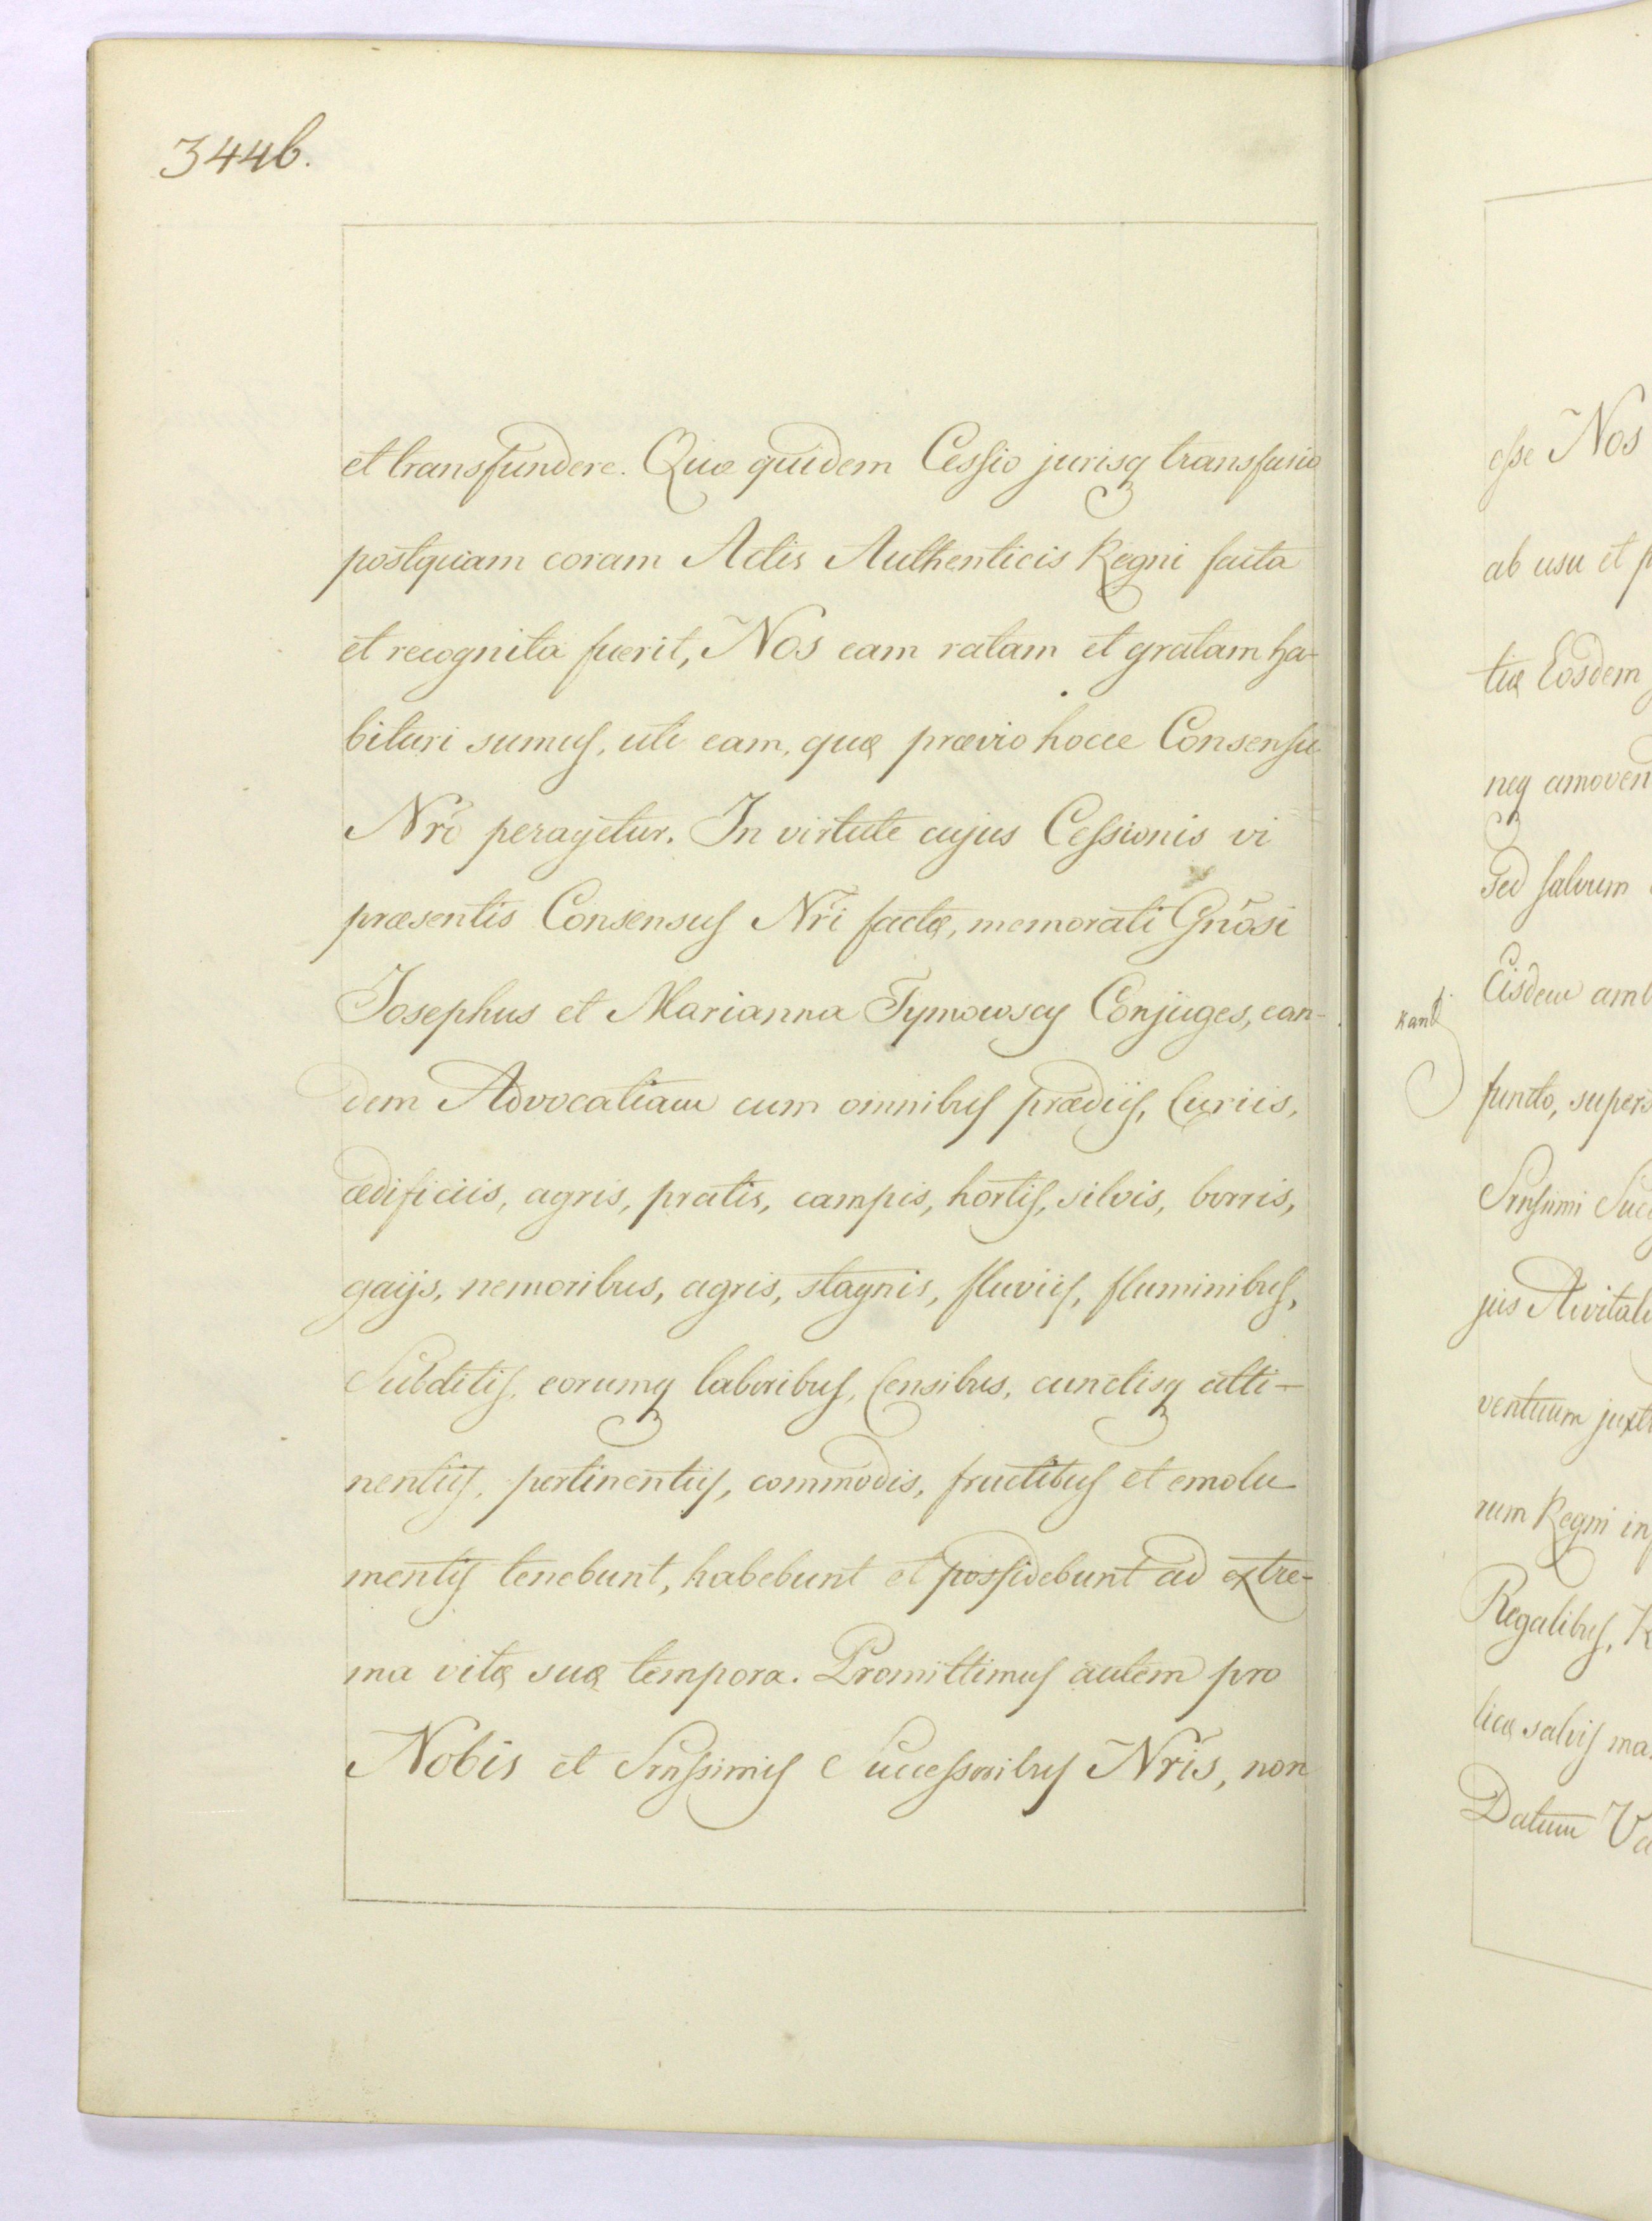 344b.
et transfundere. Quæ quidem Cessio jurisq transfusio
postquam coram Actis Authenticis Regni facta
et recognita fuerit, Nos eam ratam et gratam ha-
bituri sumus, uti eam, quæ prævio hocce Consensu
Nrō peragetur. In virtute cujus Cessionis vi
præsentis Consensus Nrī factæ, memorati Gnōsi
Josephus et Marianna Tymowscy Conjuges, ean-
dem Advocatiam cum omnibus prædiis, Curiis,
ædificiis, agris, pratis, campis, hortis, silvis, borris,
gaijs, nemoribus, agris, stagnis, fluviis, fluminibus,
Subditis, eorumq laboribus, Censibus, cunctisq atti-
nentiis, pertinentiis, commodis, fructibus et emolu
mentis tenebunt, habebunt et possidebunt ad extre-
ma vitæ suæ tempora. Promittimus autem pro
Nobis et Srnssimis Successoribus Nrīs, non
esse Nos
ab usu et
tiæ Eosdem
neq amoven
sed salvum
Eisdem amb
functo, supers
Srnssimi Suc
jus Advitali
ventuum juxt
rum Regni in
Regalibus,
licæ salvis ma
Datum Va